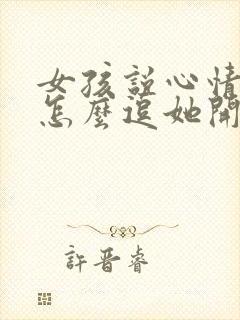 女孩說心情
怎麼逗她開
許晉睿